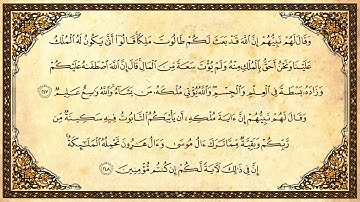 وَقَالَ لَهُمْ نَبِيُّهُمْ إِنَّ ٱللَّهَ قَدْ بَعَثَ لَكُمْ طَالُوتَ مَلِكًا قَالُوٓا۟ أَنَّىٰ يَكُونُ لَهُ ٱلْمُلْكُ
عَلَيْنَا وَنَحْنُ أَحَقُّ بِٱلْمُلْكِ مِنْهُ وَلَمْ يُؤْتَ سَعَةً مِّنَ ٱلْمَالِ قَالَ إِنَّ ٱللَّهَ ٱصْطَفَىٰهُ عَلَيْكُمْ
وَزَادَهُۥ بَسْطَةً فِى ٱلْعِلْمِ وَٱلْجِسْمِ وَٱللَّهُ يُؤْتِى مُلْكَهُۥ مَن يَشَآءُ وَٱللَّهُ وَٰسِعٌ عَلِيمٌ ٢٤٧
وَقَالَ لَهُمْ نَبِيُّهُمْ إِنَّ ءَايَةَ مُلْكِهِۦٓ أَن يَأْتِيَكُمُ ٱلتَّابُوتُ فِيهِ سَكِينَةٌ مِّن
رَّبِّكُمْ وَبَقِيَّةٌ مِّمَّا تَرَكَ ءَالُ مُوسَىٰ وَءَالُ هَٰرُونَ تَحْمِلُهُ ٱلْمَلَٰٓئِكَةُ
إِنَّ فِى ذَٰلِكَ لَءَايَةً لَّكُمْ إِن كُنتُم مُّؤْمِنِينَ ٢٤٨